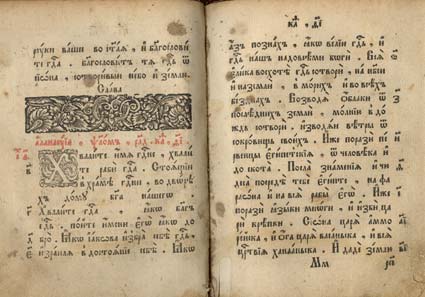 руки ваши во ст҃ая , и благослови
те гд҃а . благословитъ тѧ гд҃ь ѿ
сиона , сотворивыи небо и землю .
Слава
Хвалите имѧ гд҃не , хвали
те раби гд҃а . Стоящїи
в храмѣ гд҃ни , во дворѣх
дому бг҃а нашего
Хвалите гд҃а , ꙗко благъ
гд҃ь , поите имени его ꙗко до
бро . Ꙗко їакова избра себѣ гд҃ь ,
и израилѧ в достоѧние себѣ . Ꙗко
азъ познахъ , ꙗко велїи гд҃ь , и
гд҃ь нашъ надо всѣми бг҃и . Всѧ
елика восхотѣ гд҃ь сотвори , на нб҃си
и на земли , в морѧхъ и во всѣхъ
безднахъ . Возводѧ облаки ѿ
послѣднихъ земли , молнии в до
ждь сотвори , изводѧи вѣтры ѿ
сокровищь своихъ . Иже порази пе
рвенцы египетскїѧ ѿ человека и
до скота . Посла знамениѧ и чю
деса посредѣ тебе египте , на фа
раѡна и на всѧ рабы его . Иже
порази ꙗзыки многи , и изби ца
ри крѣпки . Сиѡна царѧ аммо
рѣиска , и ога царѧ васаньска , и всѧ
царствиѧ ханааньска . И даде землю